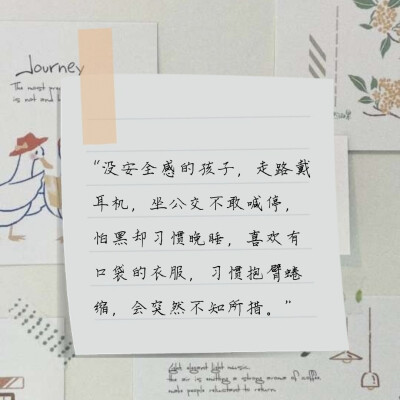 Journey
The most pre
is not and l
"没安全感的孩子，走路戴
耳机，坐公交不敢喊停，
怕黑却习惯晚睡，喜欢有
口袋的衣服，习惯抱臂蜷
缩，会突然不知所措。"
light music
the air is
make people reluctant to return